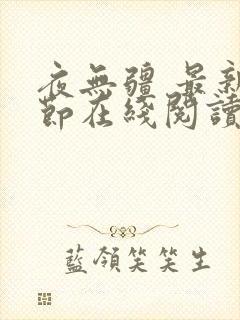 夜無疆 最新
節在綫閱讀
藍領笑笑生